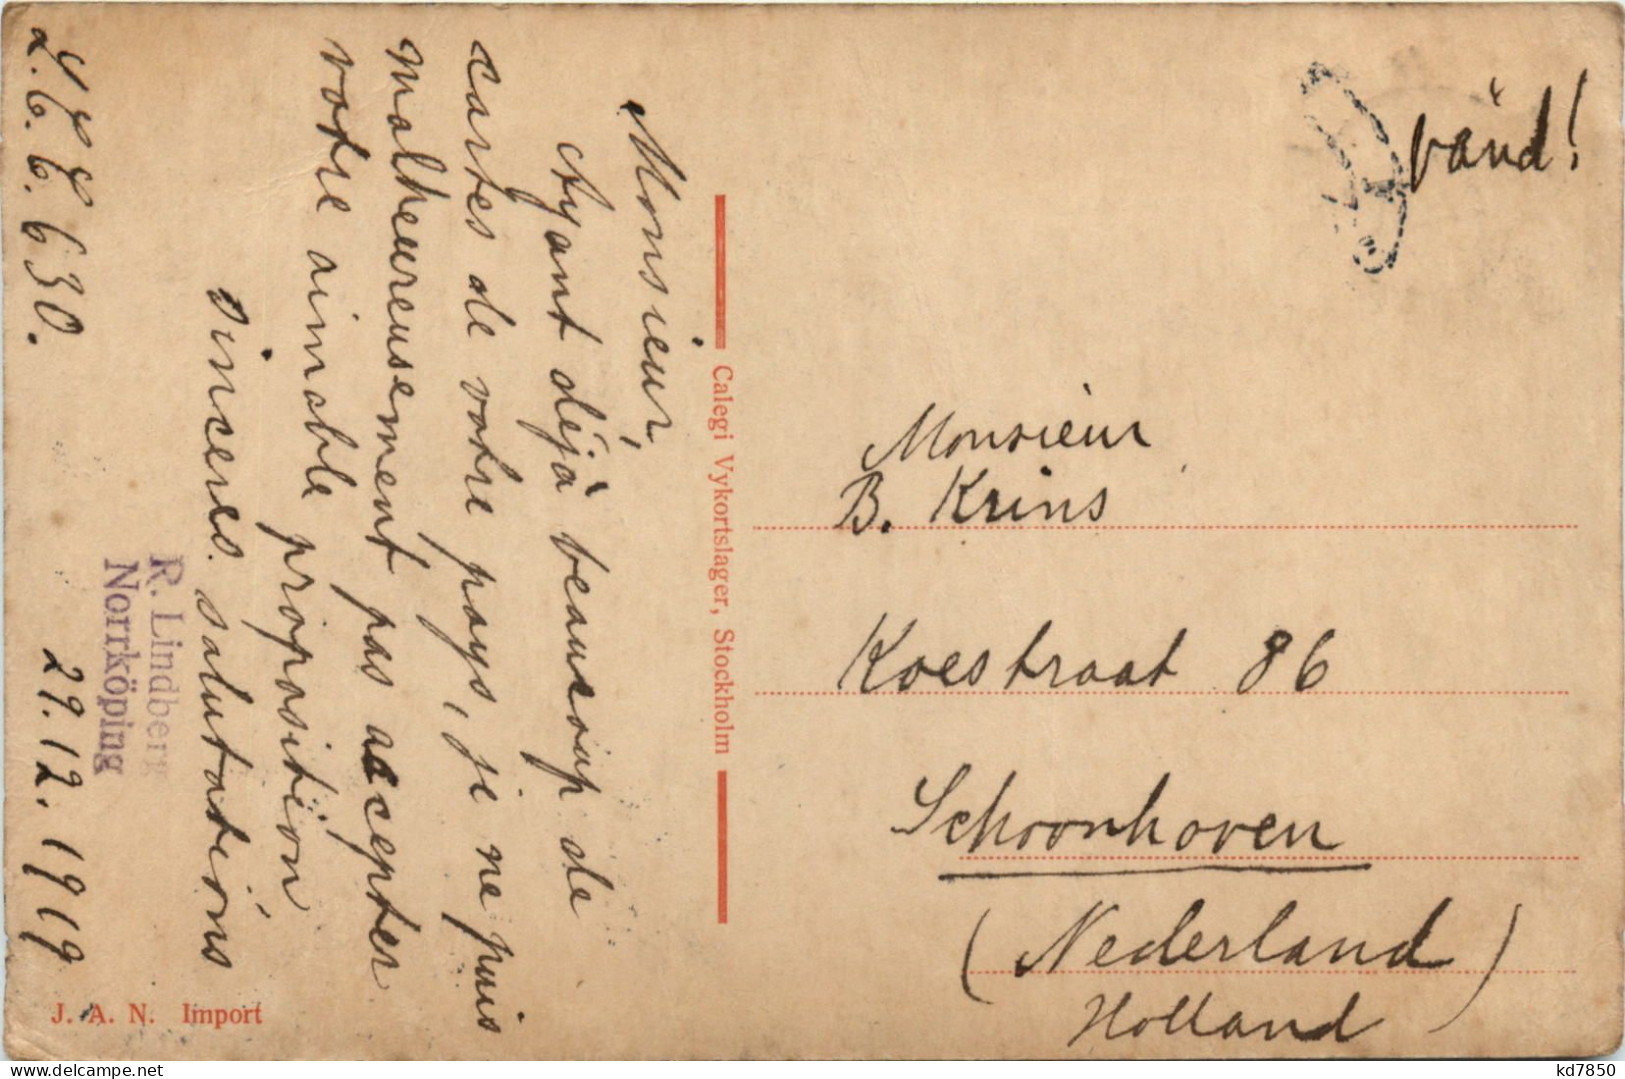 Monsieur,
Ayant déjà beaucoup de
cartes de votre pays, je ne puis
malheureusement pas accepter
votre aimable proposition
Sinceres salutations
R. Lindberg
Norrköping
29.12.1919
J. A. N. Import
Calegi Vykortslager, Stockholm
vänd!
Monsieur
B. Krins
Koestraat 86
Schoonhoven
(Nederland)
Holland
delcampe.net
kd7850